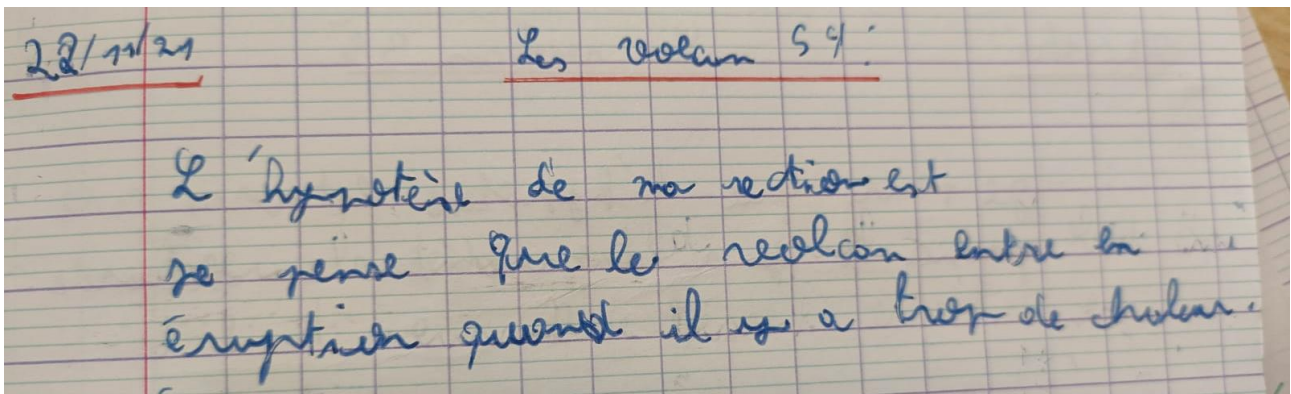 22/11/21 Les volcan S4 :
L'hypotèse de ma rection est
je pense que le volcan entre en
éruption quand il y a trop de chaleur.